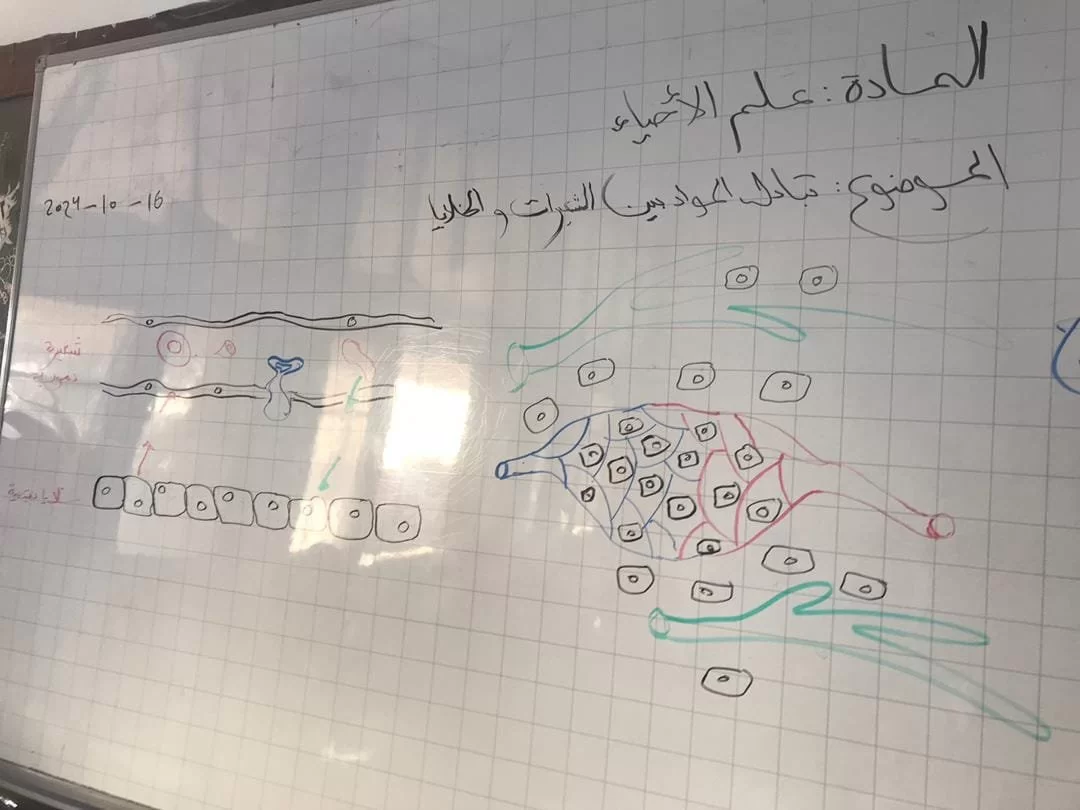 المادة: علم الأحياء
الموضوع: تبادل المواد بين الشعيرات والخلايا
2024-10-16
شعيرة
دموية